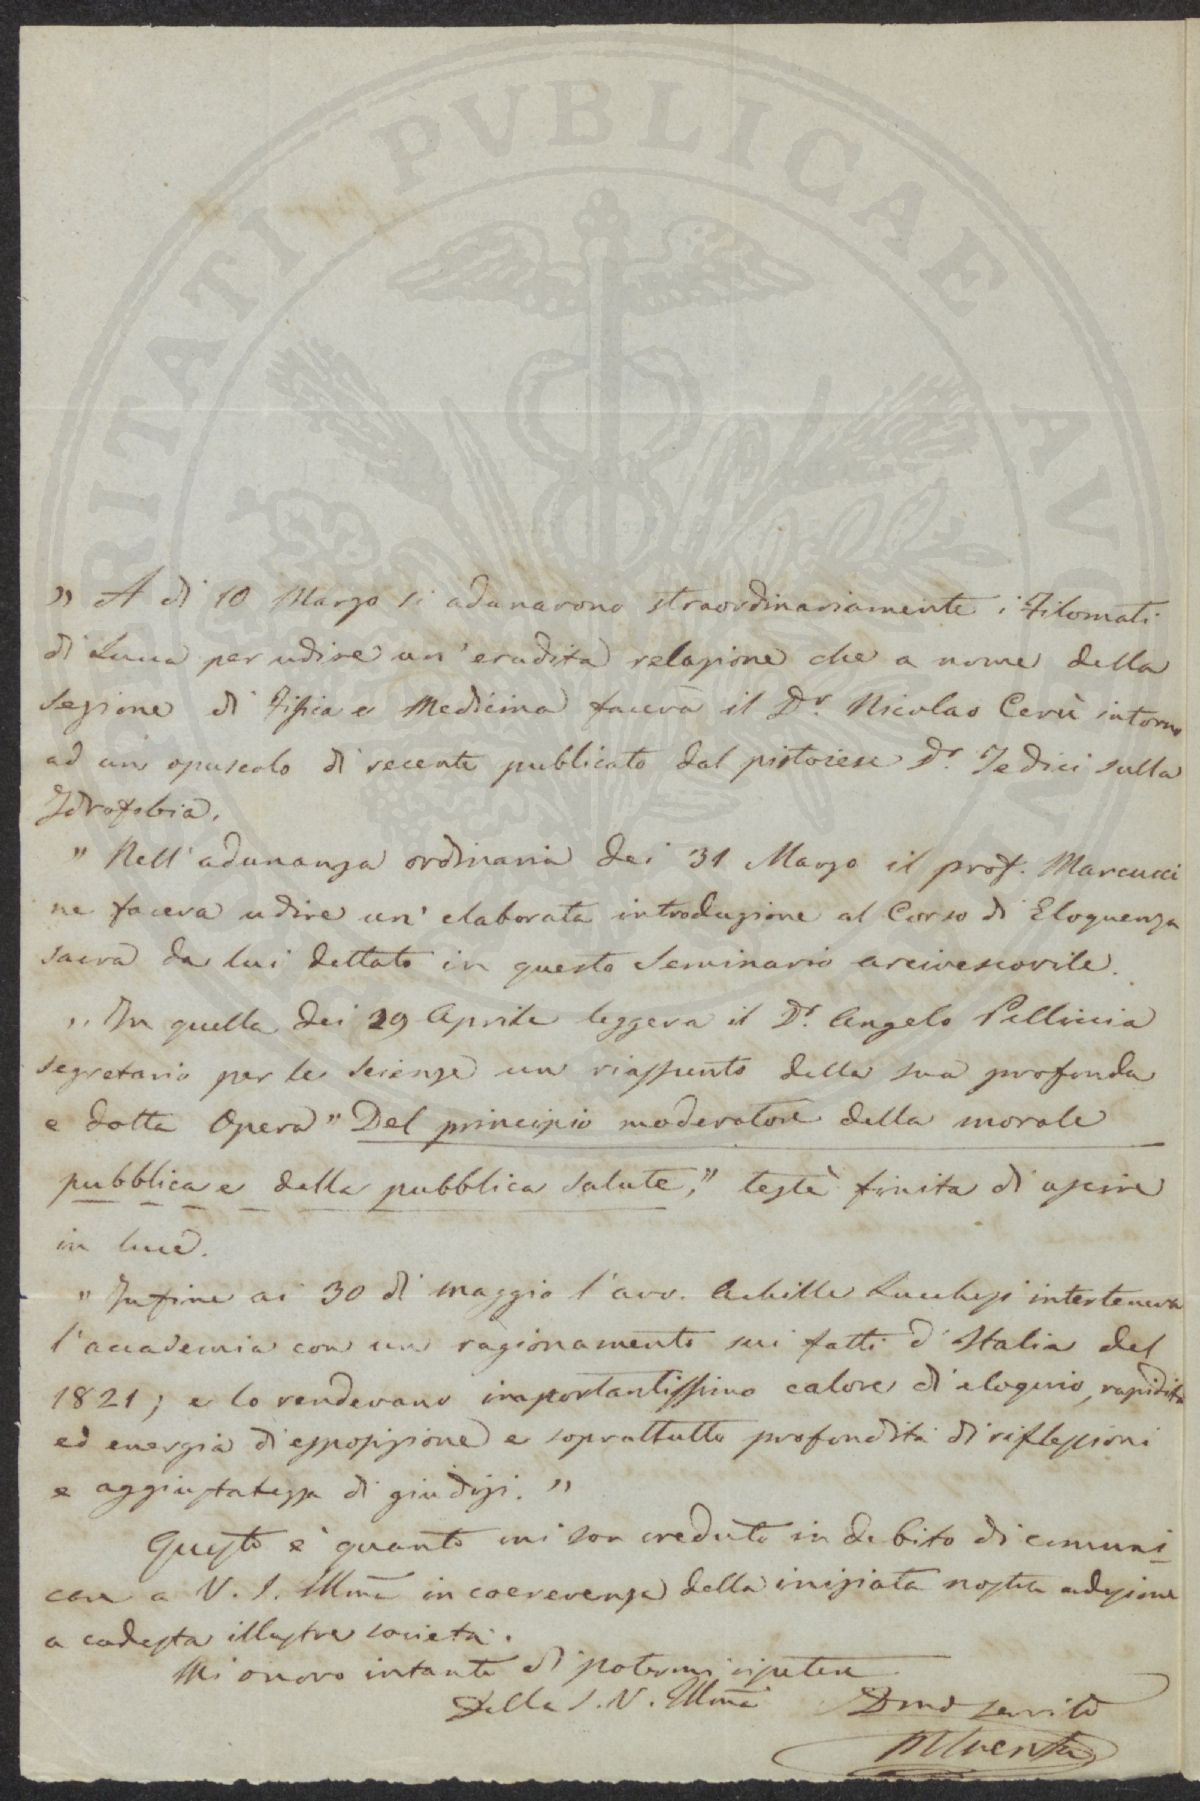 PROSPERITATI PVBLICAE AVGENDAE
" A dì 10 Marzo si adunavono straordinariamente i Filomati
di Lucca per udire un' erudita relazione che a nome della
sezione di Fisica e Medicina faceva il Dr. Nicolao Cerù intorno
ad un opuscolo di recente pubblicato dal pistoiese Dr. Tedici sulla
Idrofobia.
" Nell' adunanza ordinaria dei 31 Marzo il prof. Marcucci
ne faceva udire un' elaborata introduzione al Corso di Eloquenza
sacra da lui dettato in questo Seminario arcivescovile.
" In quella dei 29 Aprile leggeva il Dr. Angelo Pelliccia
segretario per le scienze un riassunto della sua profonda
e dotta Opera " Del principio moderatore della morale
pubblica e della pubblica salute, " testè finita di uscire
in luce.
" Infine ai 30 di maggio l' avv. Achille Lucchesi interteneva
l' accademia con un ragionamento sui fatti d' Italia del
1821; e lo rendevano importantissimo calore di eloquio, rapidità
ed energia di esposizione e soprattutto profondità di riflessioni
e aggiustatezza di giudizi. "
Questo è quanto mi son creduto in debito di comuni-
care a V. S. Illma in coerenza della iniziata nostra adesione
a codesta illustre società.
Mi onoro intanto di potermi ripetere
Della S. V. Illma Dmo servito